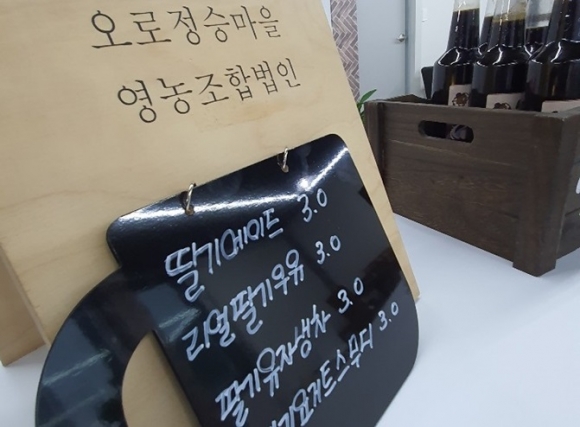 오로정승마을
영농조합법인
딸기에이드 3.0
리얼딸기우유 3.0
딸기유자생차 3.0
딸기요거트스무디 3.0